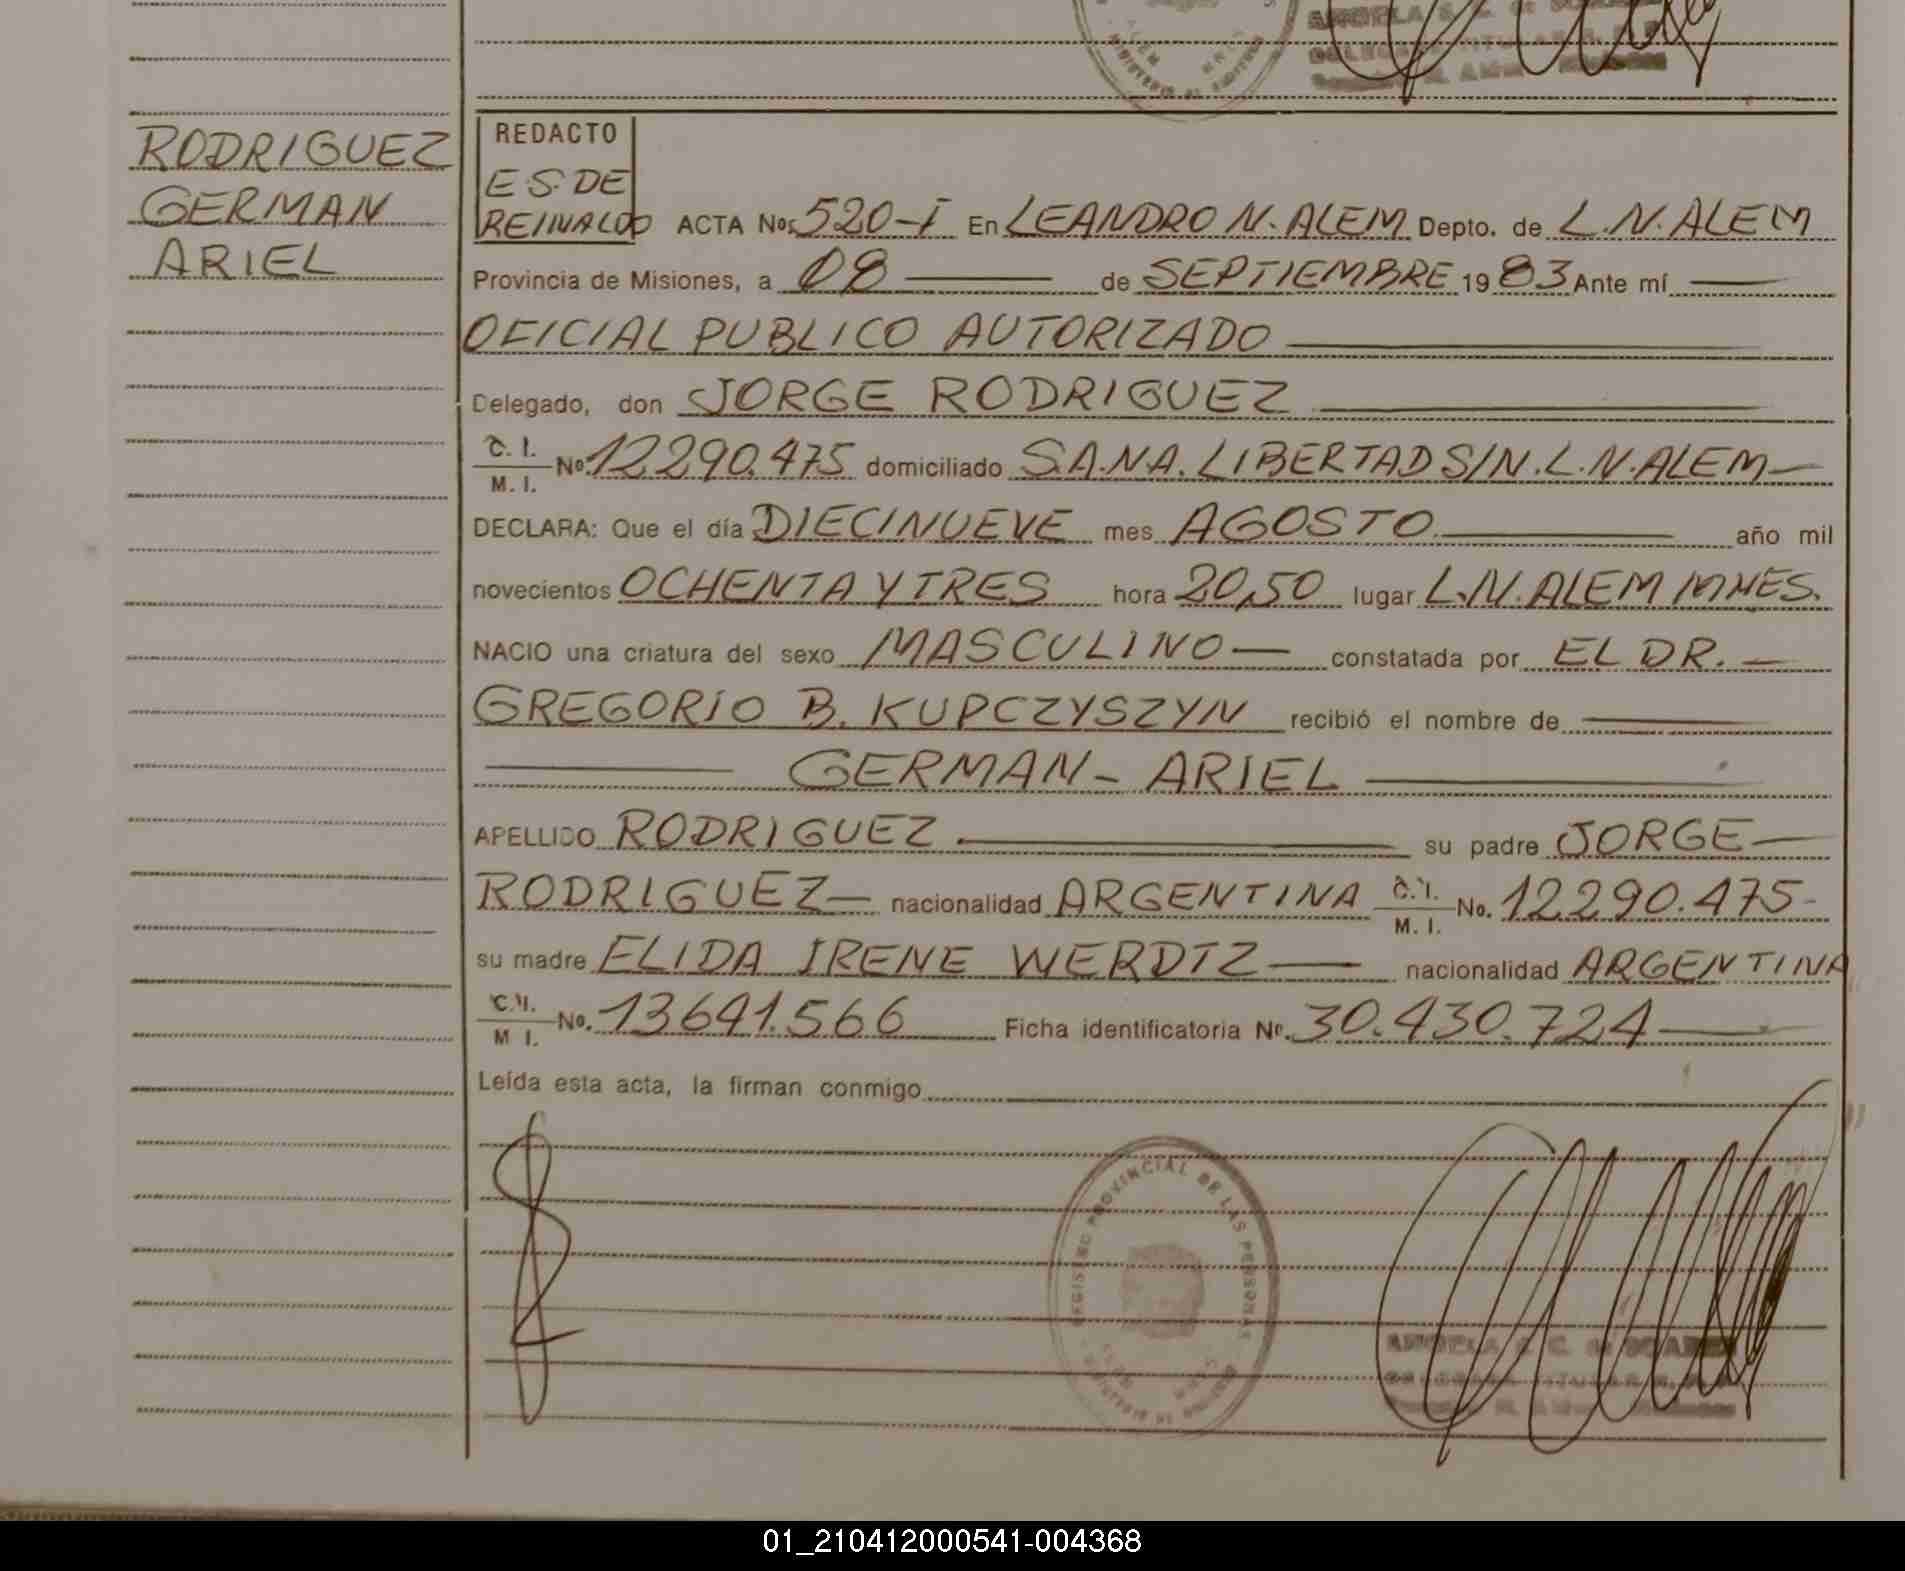 RODRIGUEZ
GERMAN
ARIEL
REDACTO
E.S. DE
REINALDO ACTA No. 520-I En LEANDRO N. ALEM Depto. de L.N. ALEM
Provincia de Misiones, a 08 de SEPTIEMBRE 1983 Ante mí
OFICIAL PUBLICO AUTORIZADO
Delegado, don JORGE RODRIGUEZ
C. I.
M. I. No. 12290.475 domiciliado S.A.N.A. LIBERTAD S/N. L.N. ALEM
DECLARA: Que el día DIECINUEVE mes AGOSTO año mil
novecientos OCHENTA Y TRES hora 20,50 lugar L.N. ALEM MNES.
NACIO una criatura del sexo MASCULINO constatada por EL DR.
GREGORIO B. KUPCZYSZYN recibió el nombre de
GERMAN - ARIEL
APELLIDO RODRIGUEZ su padre JORGE
RODRIGUEZ nacionalidad ARGENTINA C. I. M. I. No. 12290.475-
su madre ELIDA IRENE WERDTZ nacionalidad ARGENTINA
C. I. M I. No. 13641.566 Ficha identificatoria No. 30.430.724
Leída esta acta, la firman conmigo
REGISTRO PROVINCIAL DE LAS PERSONAS
ANGELA S. C. de SOAREZ
DELEGADA TITULAR
01_210412000541-004368